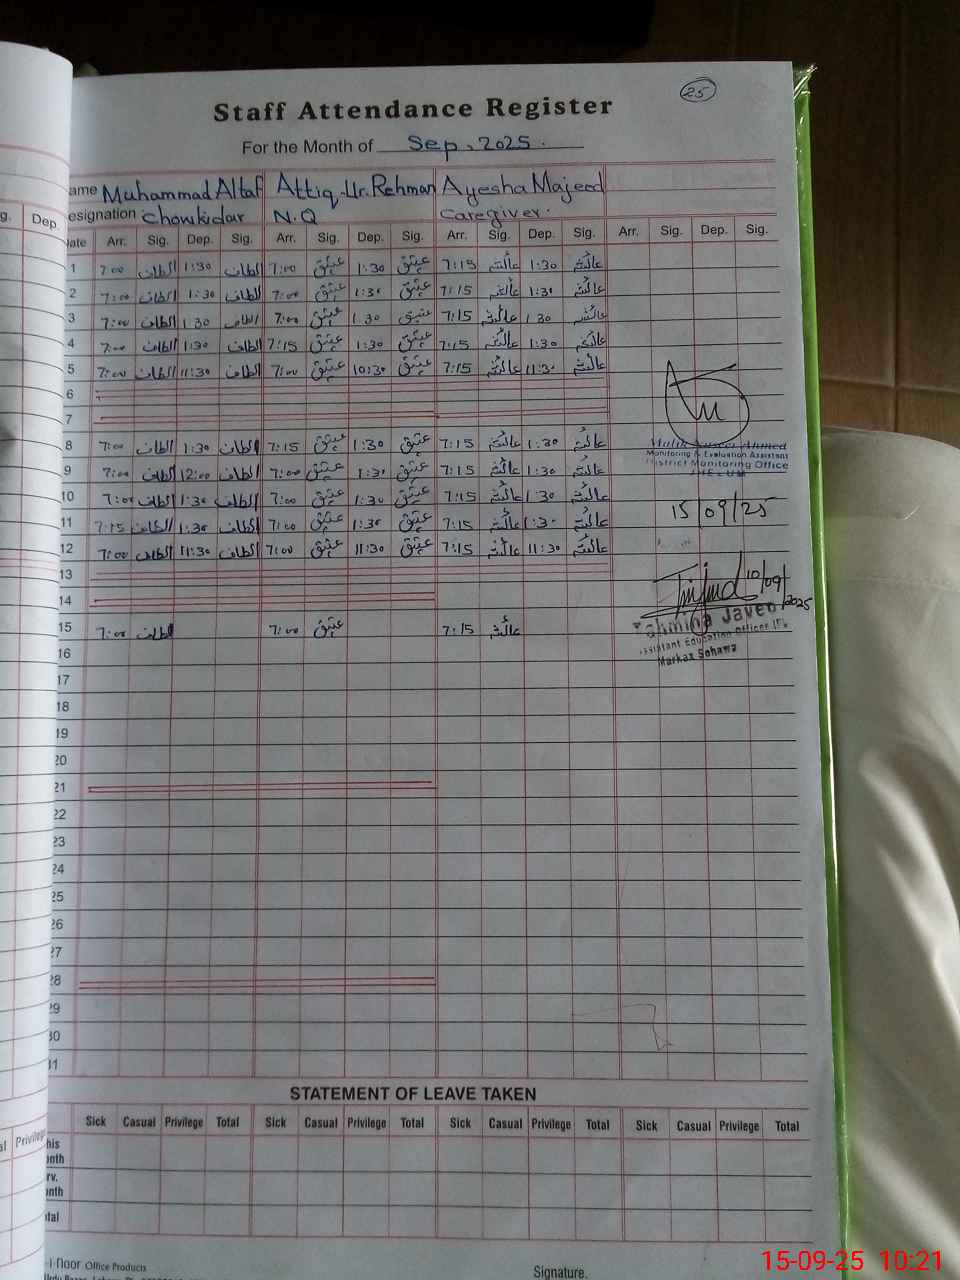 25
Staff Attendance Register
For the Month of Sep, 2025.
ame Muhammad Altaf Attiq-Ur-Rehman Ayesha Majeed
esignation Chowkidar N.Q Caregiver.
g. Dep. ate Arr. Sig. Dep. Sig. Arr. Sig. Dep. Sig. Arr. Sig. Dep. Sig. Arr. Sig. Dep. Sig.
1 7:00 الطاف 1:30 الطاف 7:00 عتیق 1:30 عتیق 7:15 عائشہ 1:30 عائشہ
2 7:00 الطاف 1:30 الطاف 7:00 عتیق 1:30 عتیق 7:15 عائشہ 1:30 عائشہ
3 7:00 الطاف 1:30 الطاف 7:00 عتیق 1:30 عتیق 7:15 عائشہ 1:30 عائشہ
4 7:00 الطاف 1:30 الطاف 7:15 عتیق 1:30 عتیق 7:15 عائشہ 1:30 عائشہ
5 7:00 الطاف 11:30 الطاف 7:00 عتیق 10:30 عتیق 7:15 عائشہ 11:30 عائشہ
6
7
8 7:00 الطاف 1:30 الطاف 7:15 عتیق 1:30 عتیق 7:15 عائشہ 1:30 عائشہ
Ahmed
Monitoring & Evaluation Assistant
9 7:00 الطاف 12:00 الطاف 7:00 عتیق 1:30 عتیق 7:15 عائشہ 1:30 عائشہ
District Monitoring Office
JHELUM
10 7:00 الطاف 1:30 الطاف 7:00 عتیق 1:30 عتیق 7:15 عائشہ 1:30 عائشہ
15/09/25
11 7:15 الطاف 1:30 الطاف 7:00 عتیق 1:30 عتیق 7:15 عائشہ 1:30 عائشہ
12 7:00 الطاف 11:30 الطاف 7:00 عتیق 11:30 عتیق 7:15 عائشہ 11:30 عائشہ
13
10/09/2025
14
ahmina Javed
15 7:00 الطاف 7:00 عتیق 7:15 عائشہ
ssistant Education Officer
Markaz Sohawa
16
17
18
19
20
21
22
23
24
25
26
27
28
29
30
31
STATEMENT OF LEAVE TAKEN
Sick Casual Privilege Total Sick Casual Privilege Total Sick Casual Privilege Total Sick Casual Privilege Total
al Privilege his
onth
rv.
onth
tal
-i-noor Office Products
Signature.
15-09-25 10:21